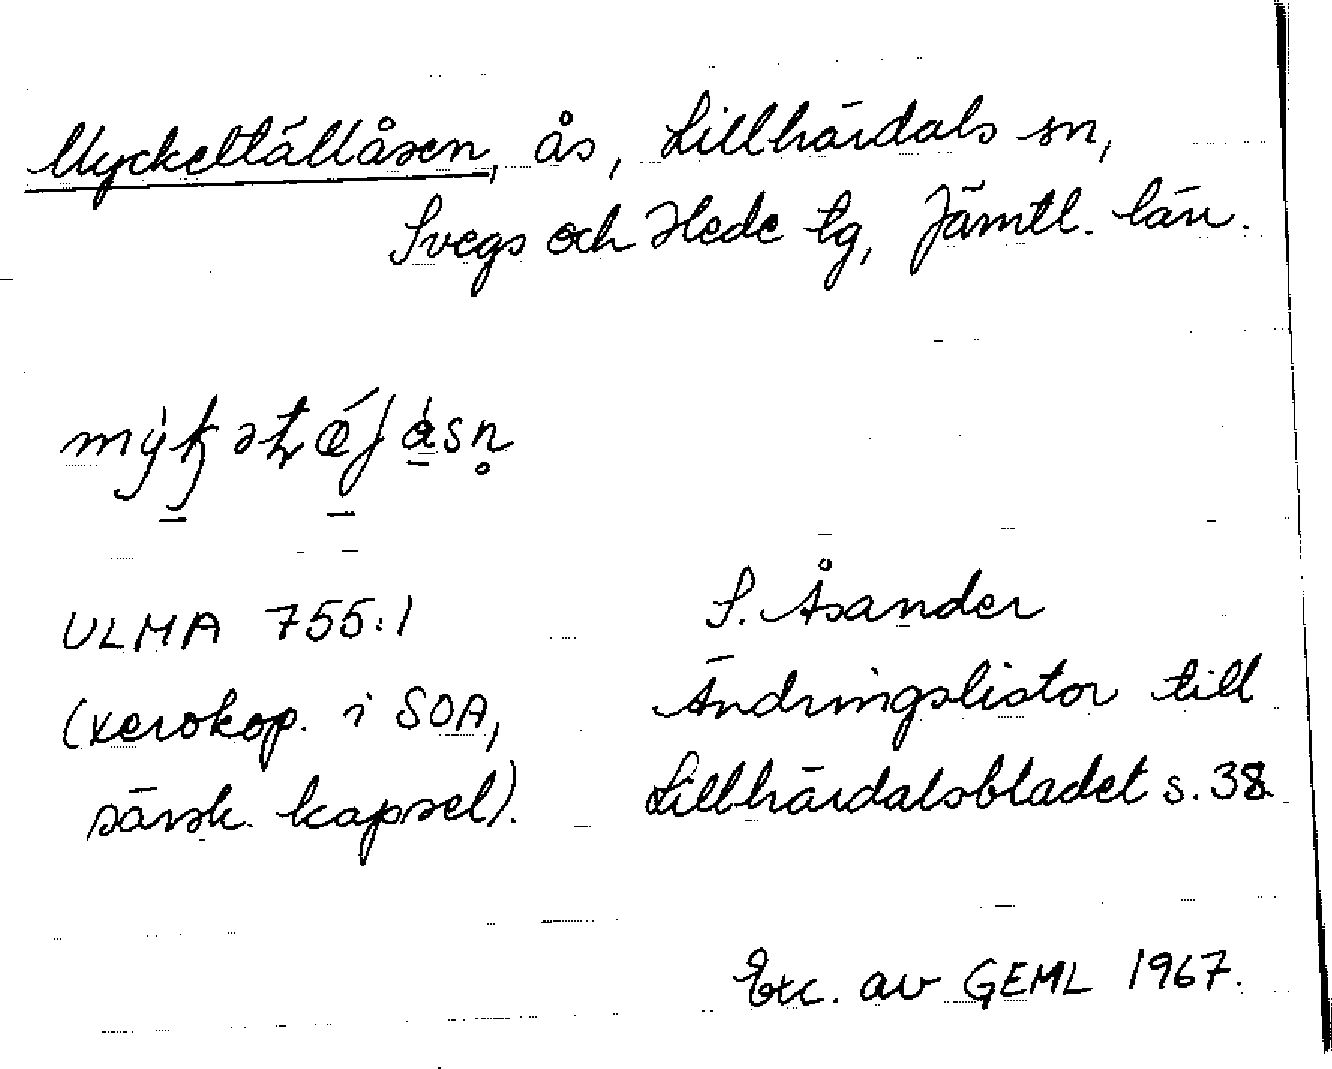 Myckeltällåsen, ås, Lillhärdals sn,
Svegs och Hede tg, Jämtl. län.
ULMA 755:1
(xerokop. i SOA,
särsk. kapsel).
S. Åsander
Ändringslistor till
Lillhärdalsbladet s. 38.
Exc. av GEML 1967.